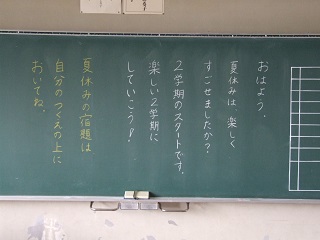 おはよう。
夏休みは 楽しく
すごせましたか?
2学期のスタートです。
楽しい2学期に
していこう!
夏休みの宿題は
自分のつくえの上に
おいてね。